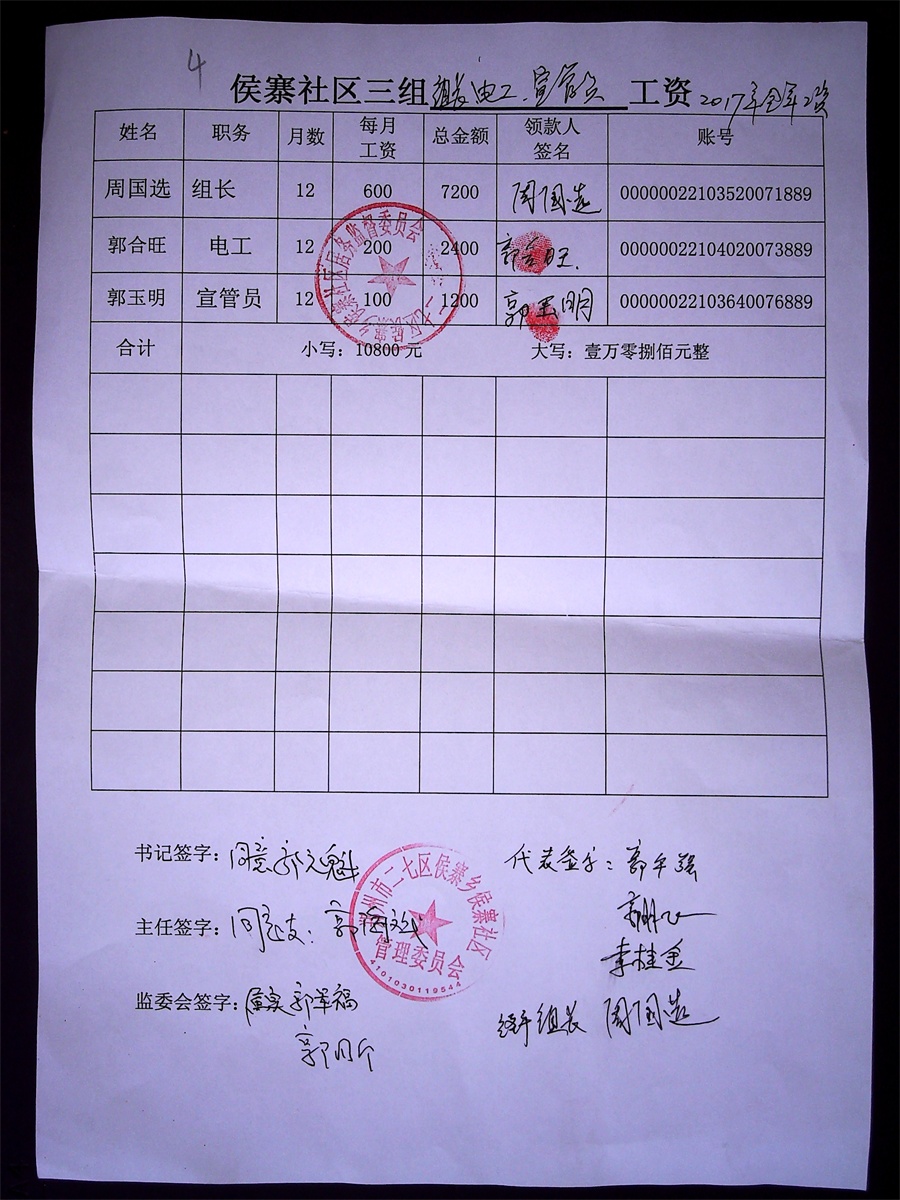 4
侯寨社区三组组长电工.宣管员工资2017年全年工资
姓名 职务 月数 每月工资 总金额 领款人签名 账号
周国选 组长 12 600 7200 周国选 00000022103520071889
郭合旺 电工 12 200 2400 郭合旺. 00000022104020073889
郭玉明 宣管员 12 100 1200 郭玉明 00000022103640076889
合计 小写：10800元 大写：壹万零捌佰元整
二七区侯寨乡侯寨社区居务监督委员会
书记签字：同意郭元魁 代表签字：郭年强
主任签字：同意支：郭
李桂金
郑州市二七区侯寨乡侯寨社区
管理委员会
4101030119544
监委会签字：属实郭军福
经手组长 周国选